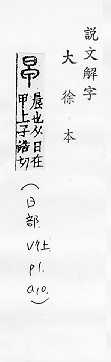 說文解字
大徐本
早
晨也从日在
甲上子浩切
(日部. V7上. p1. a10.)